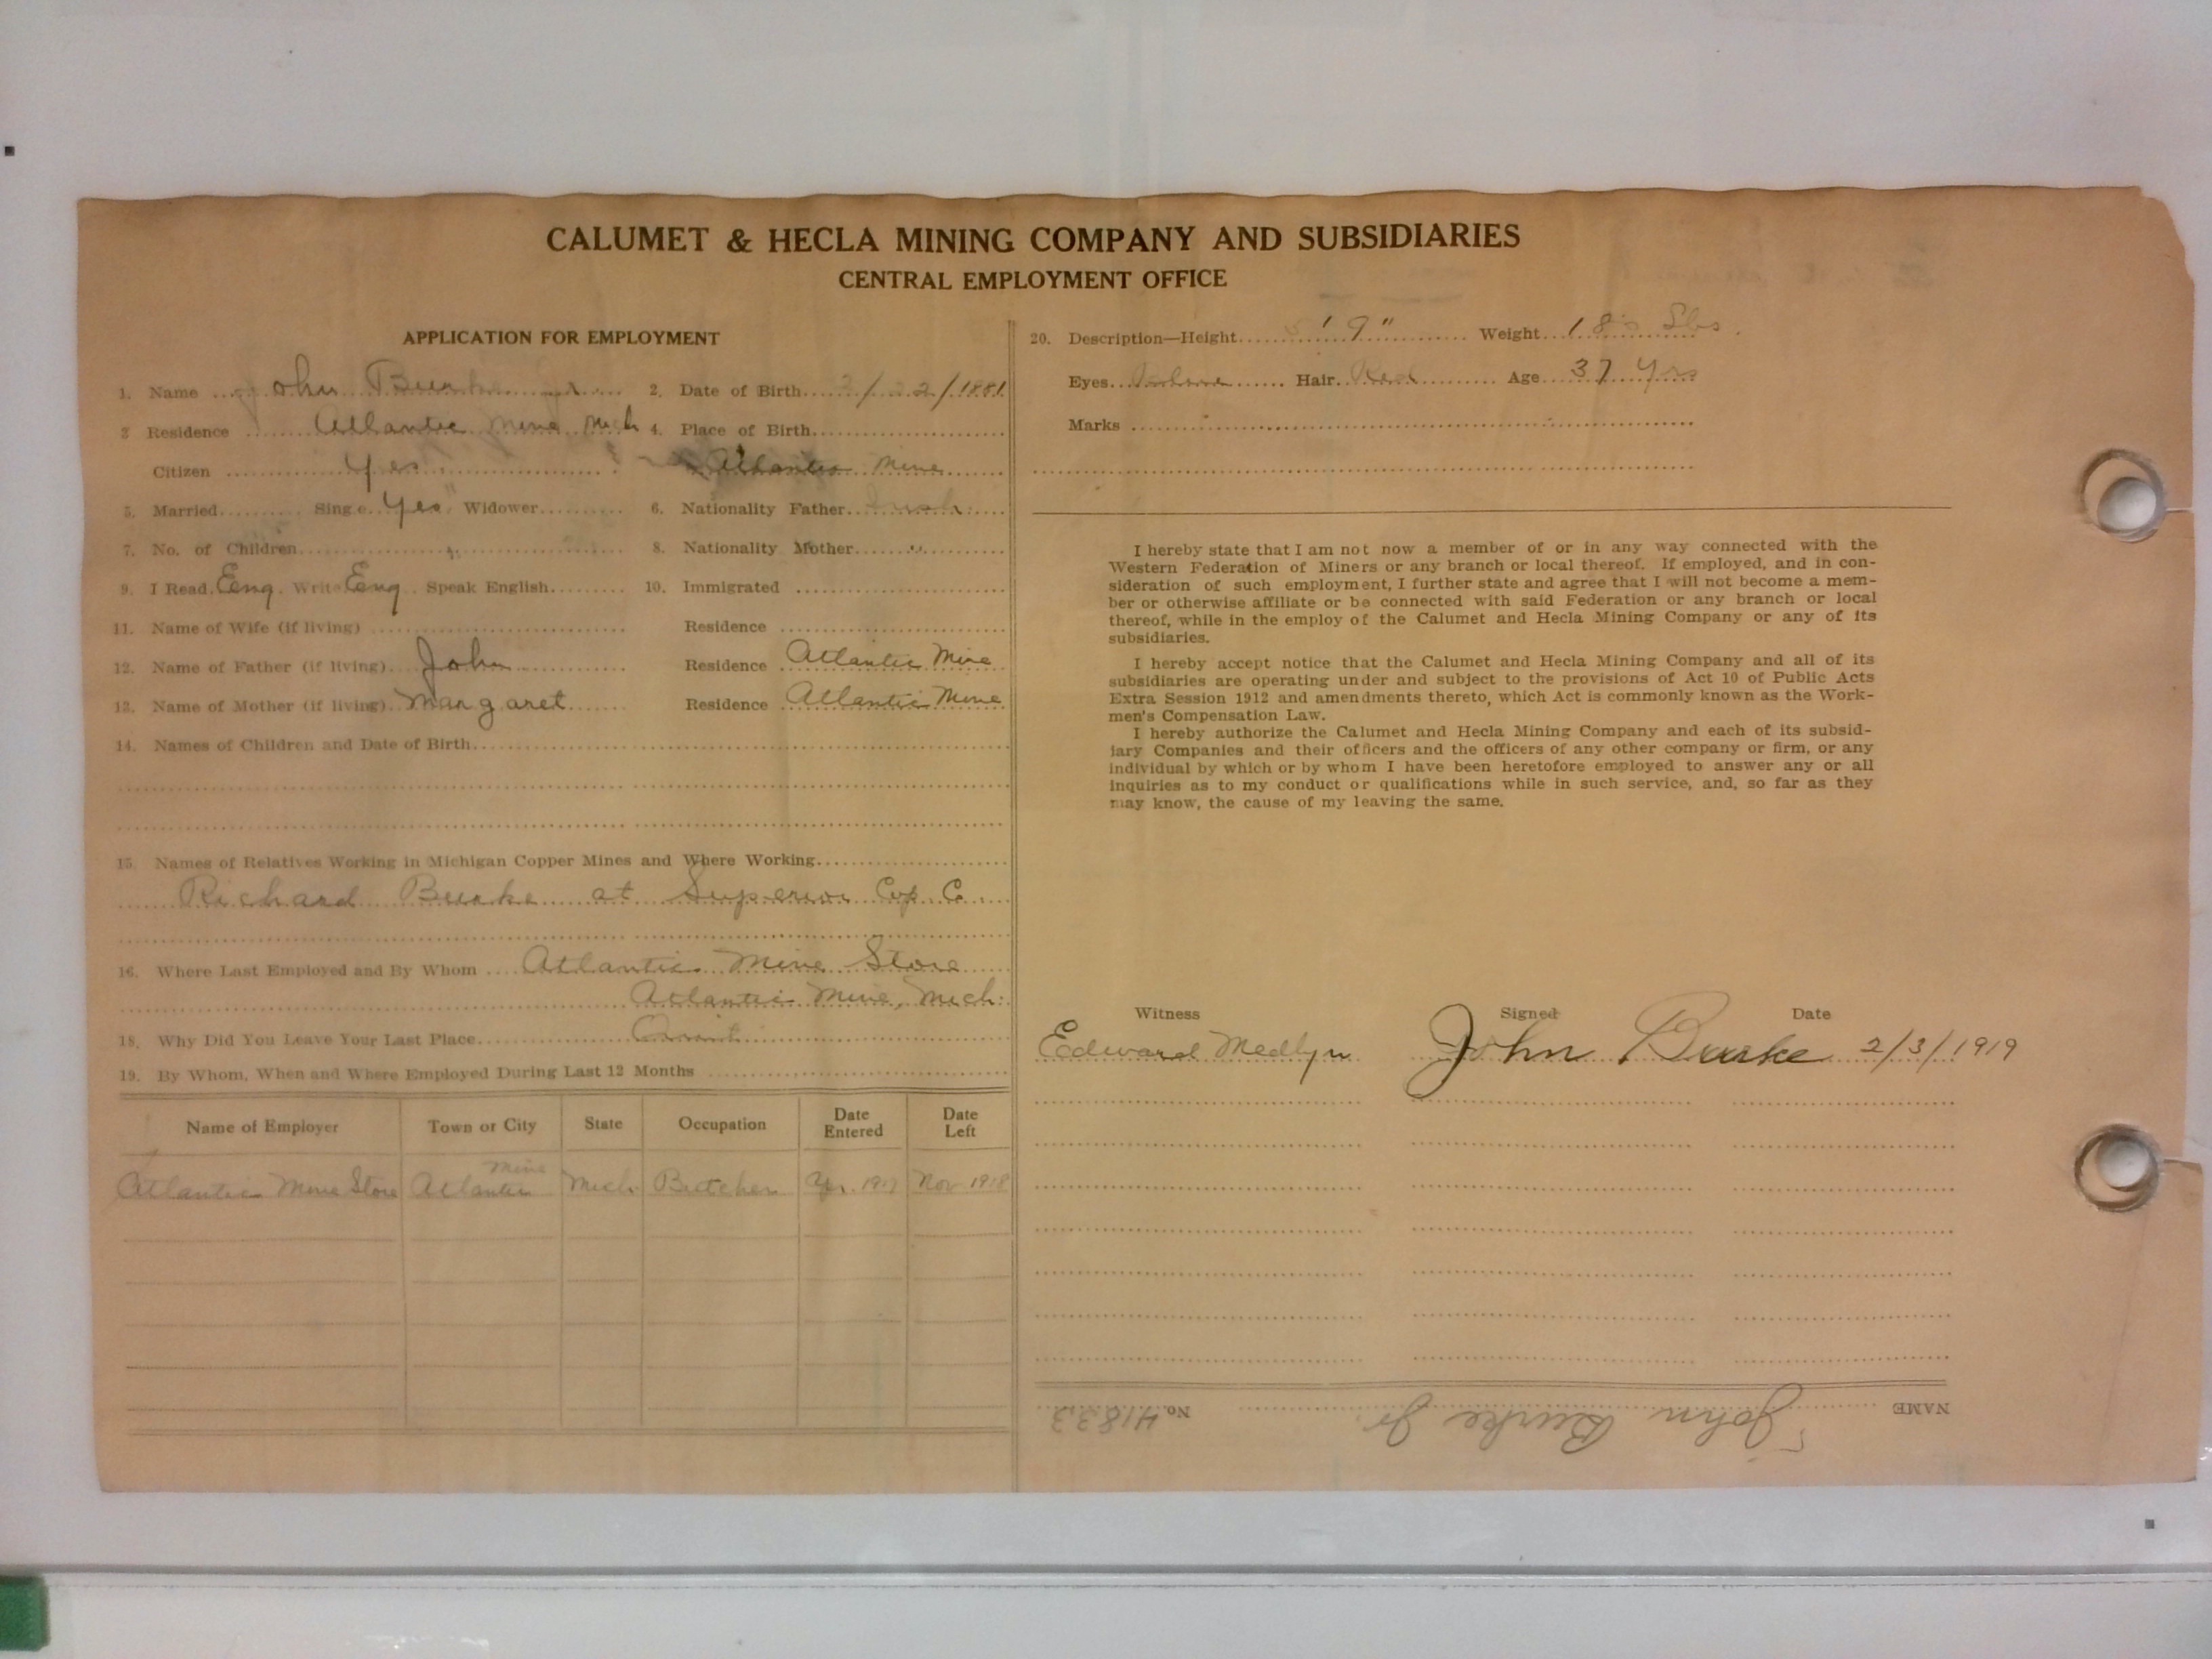 CALUMET & HECLA MINING COMPANY AND SUBSIDIARIES
CENTRAL EMPLOYMENT OFFICE
APPLICATION FOR EMPLOYMENT
1. Name John Burke Jr. 2. Date of Birth 2/22/1881
3 Residence Atlantic Mine Mich 4. Place of Birth
Citizen Yes Atlantic Mine
5. Married Single Yes Widower 6. Nationality Father Irish
7. No. of Children 8. Nationality Mother "
9. I Read Eng. Write Eng. Speak English 10. Immigrated
11. Name of Wife (if living) Residence
12. Name of Father (if living) John Residence Atlantic Mine
13. Name of Mother (if living) Margaret Residence Atlantic Mine
14. Names of Children and Date of Birth
15. Names of Relatives Working in Michigan Copper Mines and Where Working
Richard Burke at Superior Cop. Co.
16. Where Last Employed and By Whom Atlantic Mine Store
Atlantic Mine, Mich.
18. Why Did You Leave Your Last Place Quit
19. By Whom, When and Where Employed During Last 12 Months
Name of Employer Town or City State Occupation Date Entered Date Left
Atlantic Mine Store Atlantic Mine Mich Butcher Yr. 1917 Nov 1918
20. Description—Height 5' 9" Weight 18 Lbs.
Eyes Hair Red Age 37 Yrs
Marks
I hereby state that I am not now a member of or in any way connected with the
Western Federation of Miners or any branch or local thereof. If employed, and in con-
sideration of such employment, I further state and agree that I will not become a mem-
ber or otherwise affiliate or be connected with said Federation or any branch or local
thereof, while in the employ of the Calumet and Hecla Mining Company or any of its
subsidiaries.
I hereby accept notice that the Calumet and Hecla Mining Company and all of its
subsidiaries are operating under and subject to the provisions of Act 10 of Public Acts
Extra Session 1912 and amendments thereto, which Act is commonly known as the Work-
men's Compensation Law.
I hereby authorize the Calumet and Hecla Mining Company and each of its subsid-
iary Companies and their officers and the officers of any other company or firm, or any
individual by which or by whom I have been heretofore employed to answer any or all
inquiries as to my conduct or qualifications while in such service, and, so far as they
may know, the cause of my leaving the same.
Witness Signed Date
Edward Medlyn John Burke 2/3/1919
NAME John Burke Jr. No. 41833